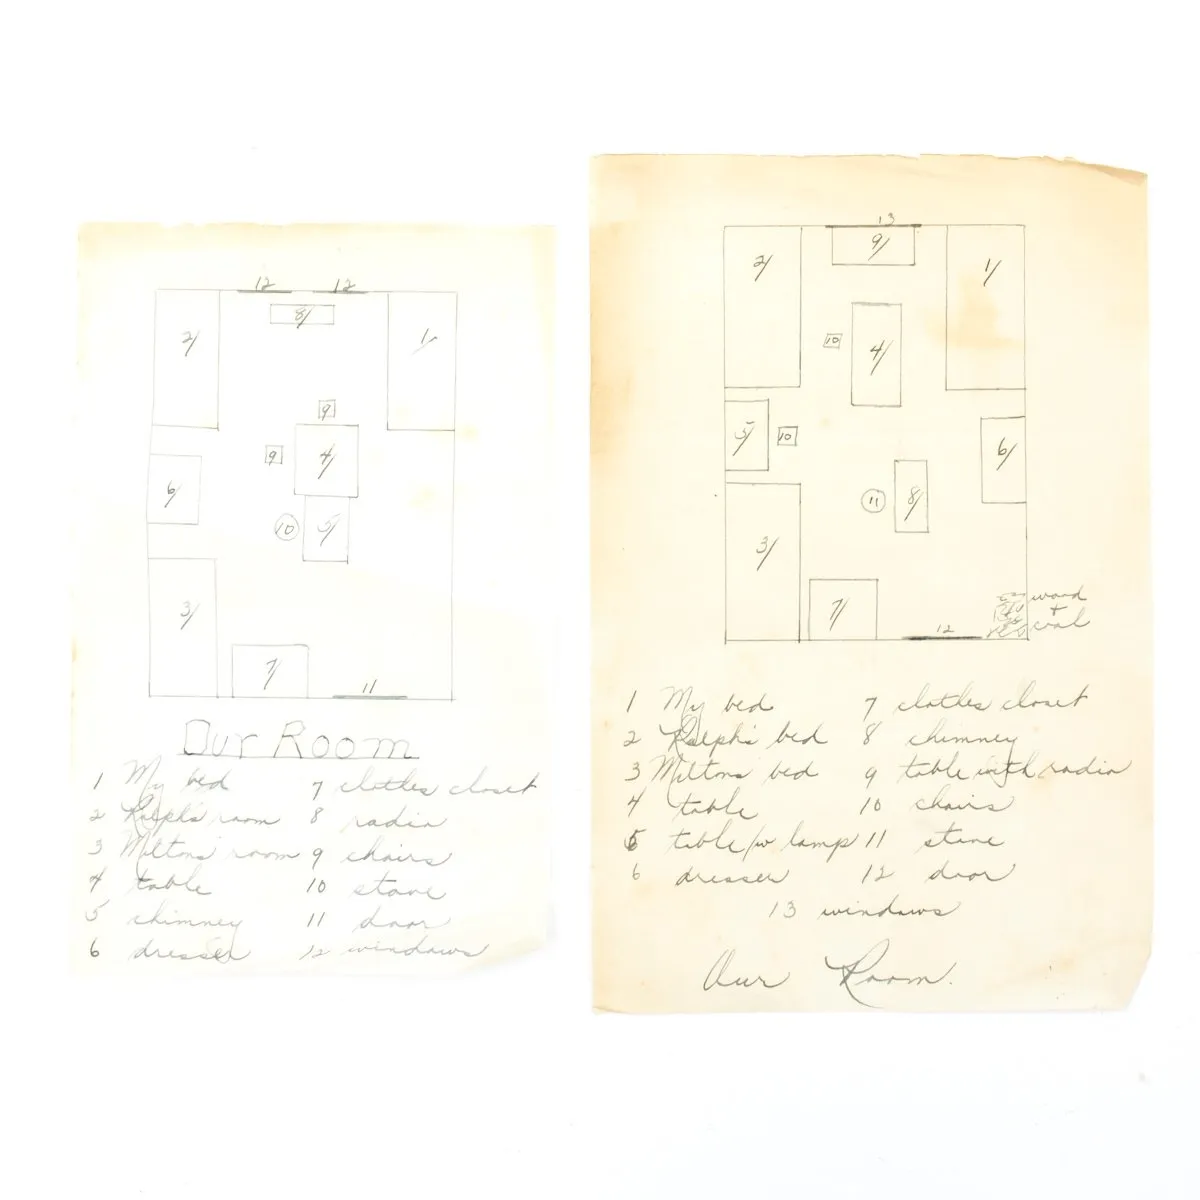 12 12
8/
2/ 1/
9
9 4/
6/
10 5/
3/
7/
11
Our Room
1 My bed 7 clothes closet
2 Ralph's room 8 radio
3 Miltons room 9 chairs
4 table 10 stove
5 chimney 11 door
6 dresser 12 windows
13
9/
2/ 1/
10 4/
5/ 10 6/
11 8/
3/
7/
wood
+
coal
12
1 My bed 7 clothes closet
2 Ralph's bed 8 chimney
3 Miltons bed 9 table with radio
4 table 10 chairs
5 table/w lamp 11 stove
6 dresser 12 door
13 windows
Our Room.